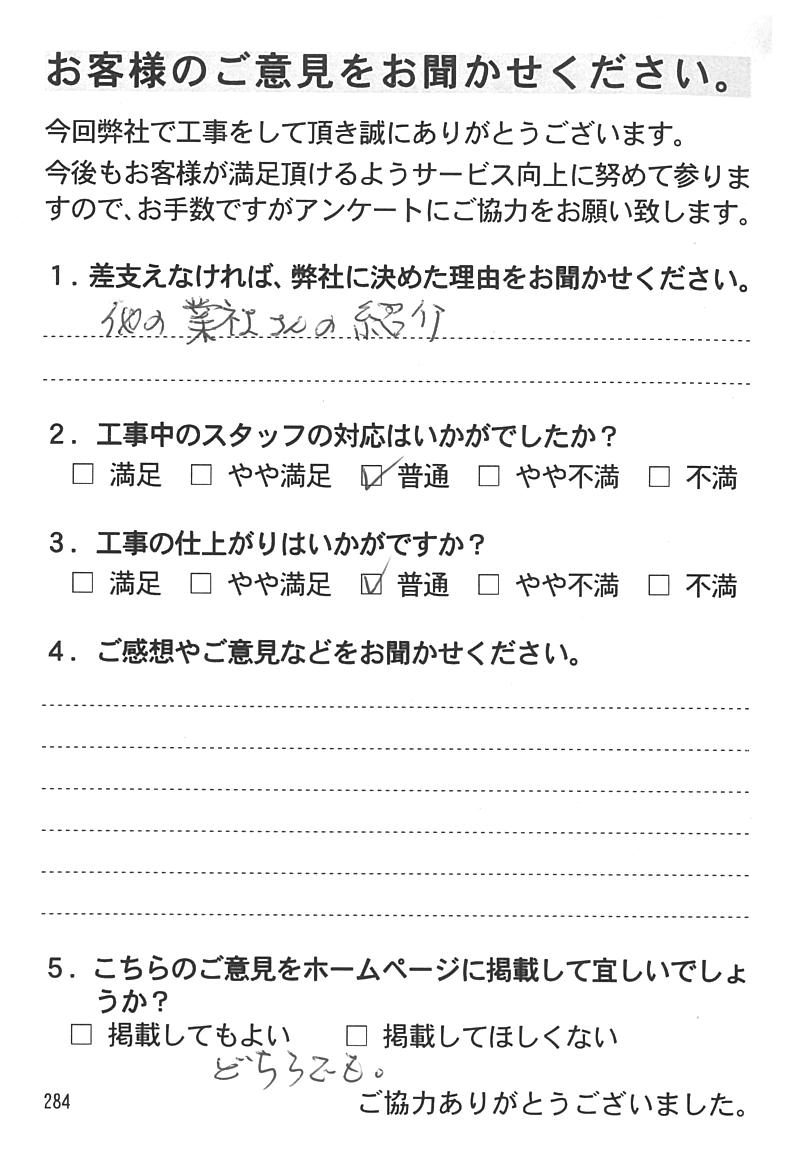 お客様のご意見をお聞かせください。
今回弊社で工事をして頂き誠にありがとうございます。
今後もお客様が満足頂けるようサービス向上に努めて参りま
すので、お手数ですがアンケートにご協力をお願い致します。
1. 差支えなければ、弊社に決めた理由をお聞かせください。
他の業社さんの紹介
2. 工事中のスタッフの対応はいかがでしたか?
□ 満足 □ やや満足 ☑ 普通 □ やや不満 □ 不満
3. 工事の仕上がりはいかがですか?
□ 満足 □ やや満足 ☑ 普通 □ やや不満 □ 不満
4. ご感想やご意見などをお聞かせください。
5. こちらのご意見をホームページに掲載して宜しいでしょ
うか?
□ 掲載してもよい □ 掲載してほしくない
どちらでも。
284 ご協力ありがとうございました。